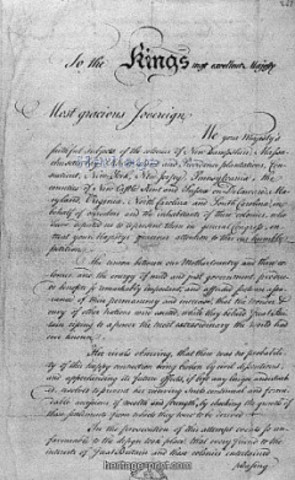 To the Kings most excellent Majesty
Most gracious Sovereign,
We your Majesty's
faithful subjects of the colonies of New Hampshire, Massa-
and Providence plantations, Con-
necticut, New York, New Jersey, Pennsylvania, the
counties of New Castle Kent and Sussex on Delaware, Ma-
ryland, Virginia, North Carolina and South Carolina, in
behalf of ourselves and the inhabitants of these colonies, who
have deputed us to represent them in general Congress, en-
treat your Majesty's gracious attention to this our humble
petition.
The union between our Mother Country and these co-
lonies, and the energy of mild and just government, produced
benefits so remarkably important, and afforded such an assu-
rance of their permanency and increase, that the wonder &
envy of other nations were excited, while they beheld Great Bri-
tain rising to a power the most extraordinary the world had
ever known.
Her rivals observing, that there was no probabi-
lity of this happy connection being broken by civil dissentions,
and apprehending its future effects, if left any longer undisturb-
ed, resolved to prevent her receiving such continual and formi-
dable accessions of wealth and strength, by checking the growth of
these settlements from which they were to be derived.
In the prosecution of this attempt events so un-
favorable to the design took place, that every friend to the
interests of Great Britain and these colonies entertained
pleasing
heritage-print.com